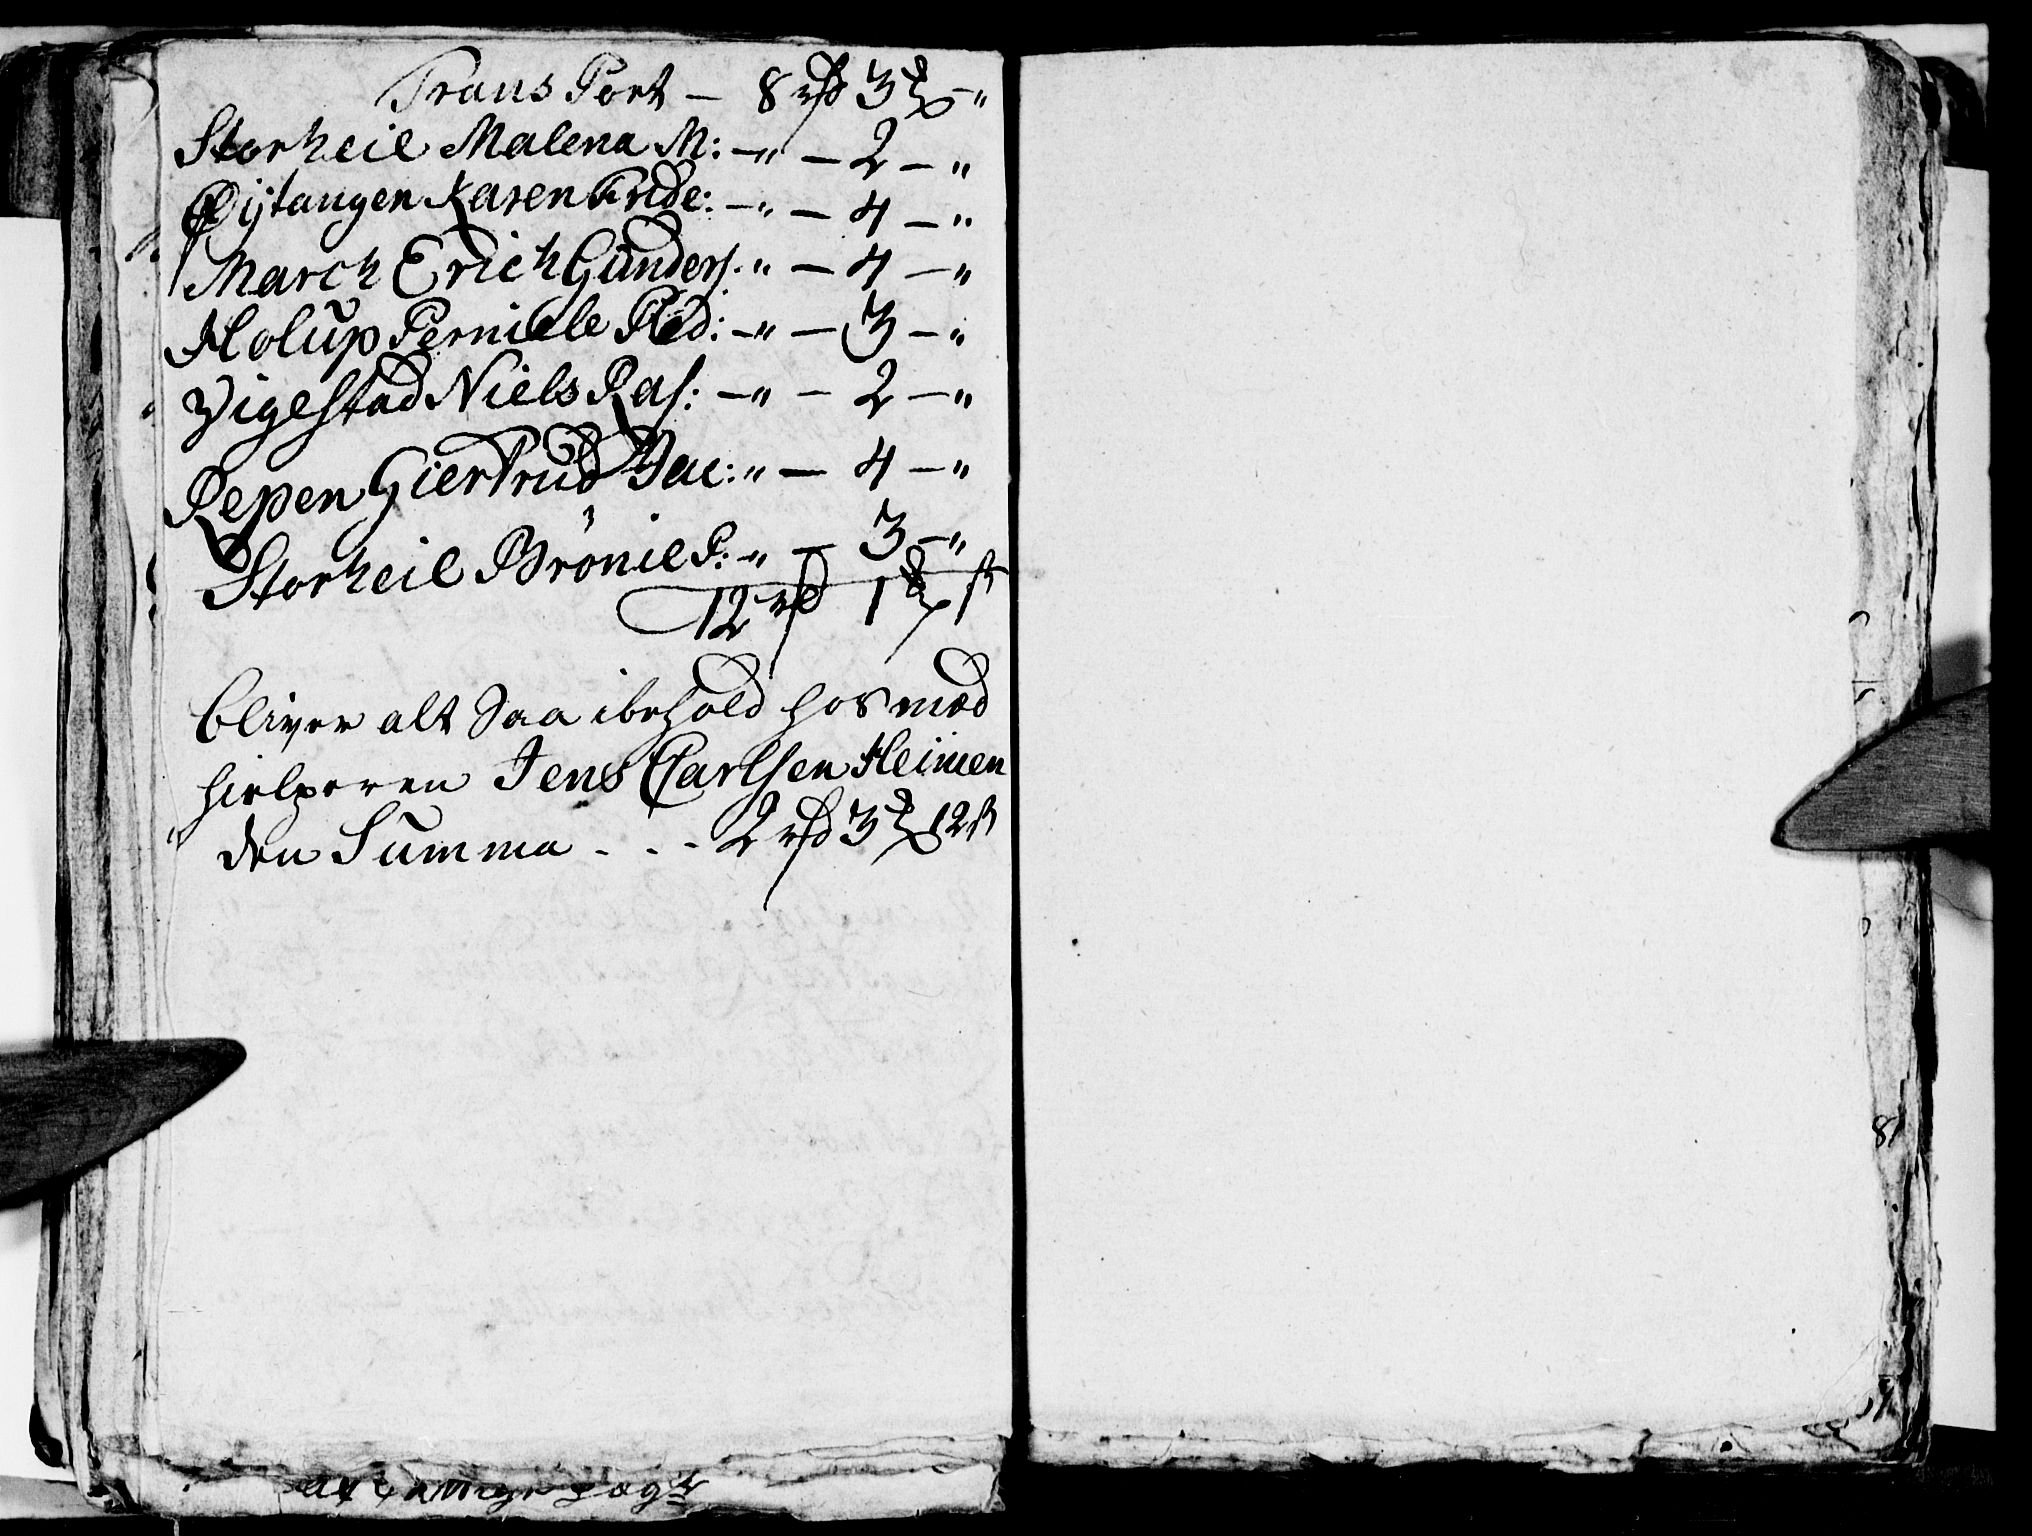 Trans Port — 8 rd 3 ₰ — "
Storheil Malena M: — " — 2 — "
Øÿtangen Karen Fride: — " — 4 — "
March Erich Gunders. " — 4 — "
Holŭp Pernille Ped: — " — 3 — "
Vigestad Niels Ras: — " — 2 — "
Repen Giertrud Jac: " — 4 — "
Storheil Brönil P: — " — 3 — "
12 rd 1 ₰ ſt
bliver alt Saa ibehold hos med
hielperen Jens Carlsen Heimen
den Summa . . . 2 rd 3 ₰ 12 ſ
8